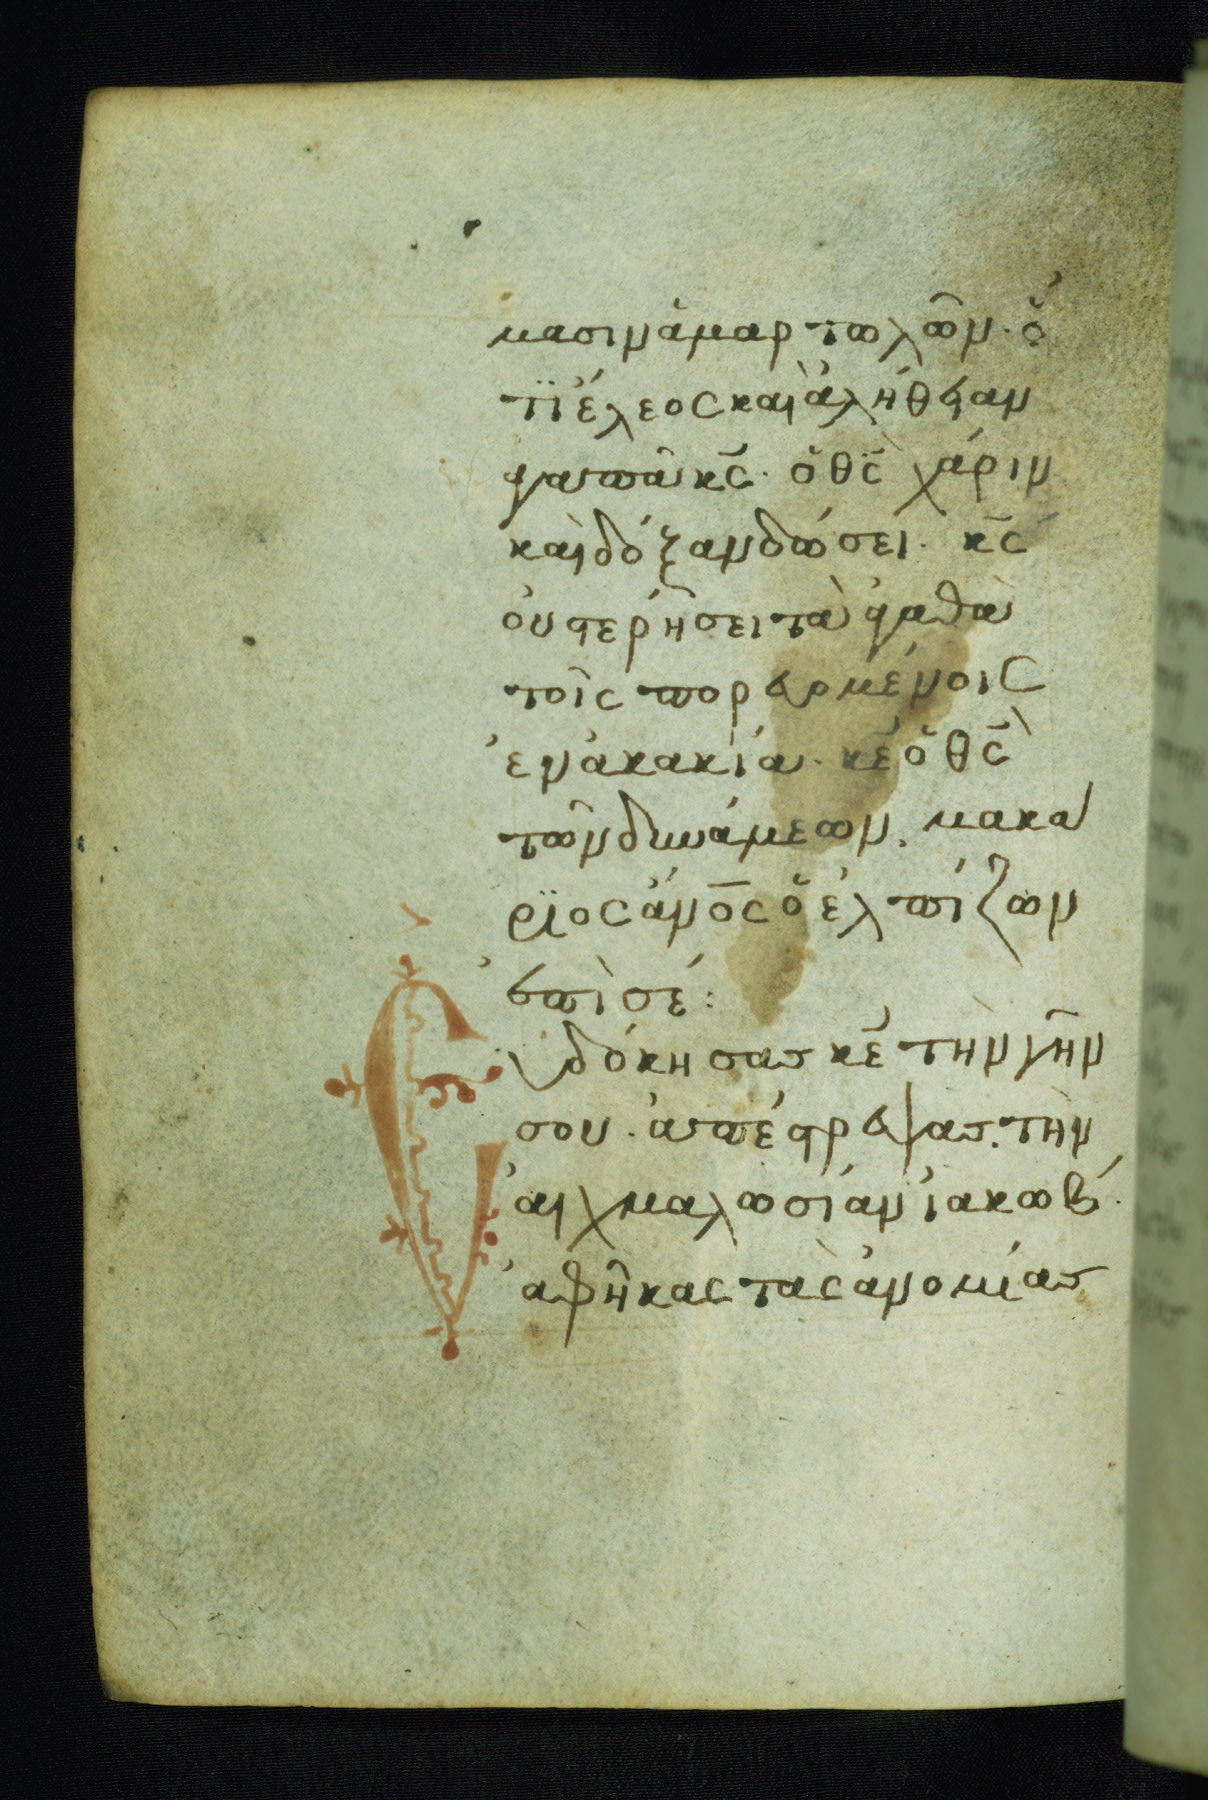 μασιν ἁμαρτωλῶν· ὅ
τϊ ἔλεος καὶ ἀλήθειαν
ἀγαπᾶ κ̅ς̅· ὁ θ̅ς̅ χάριν
καὶ δόξαν δώσει· κ̅ς̅
οὐ στερήσει τὰ ἀγαθὰ
τοῖς πορευομένοις
ἐν ἀκακία· κ̅ε̅ ὁ θ̅ς̅
τῶν δυνάμεων, μακά
ρϊος ἄν̅ο̅ς̅ ὁ ἐλπίζων
ἐπὶ σέ:
Εὐδόκησας κ̅ε̅ τὴν γῆν
σου· ἀπέστρεψας τὴν
αἰχμαλωσίαν ἰακώβ·
ἀφῆκας τὰς ἀνομίας